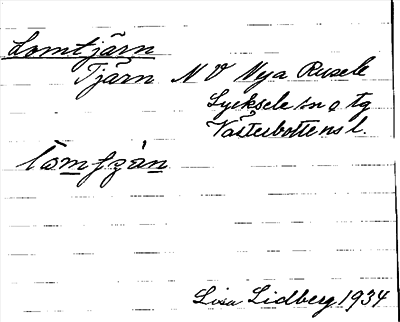 Lomtjärn
Tjärn N V Nya Rusele
Lycksele sn o tg
Västerbottens l.
Lisa Lidberg 1934